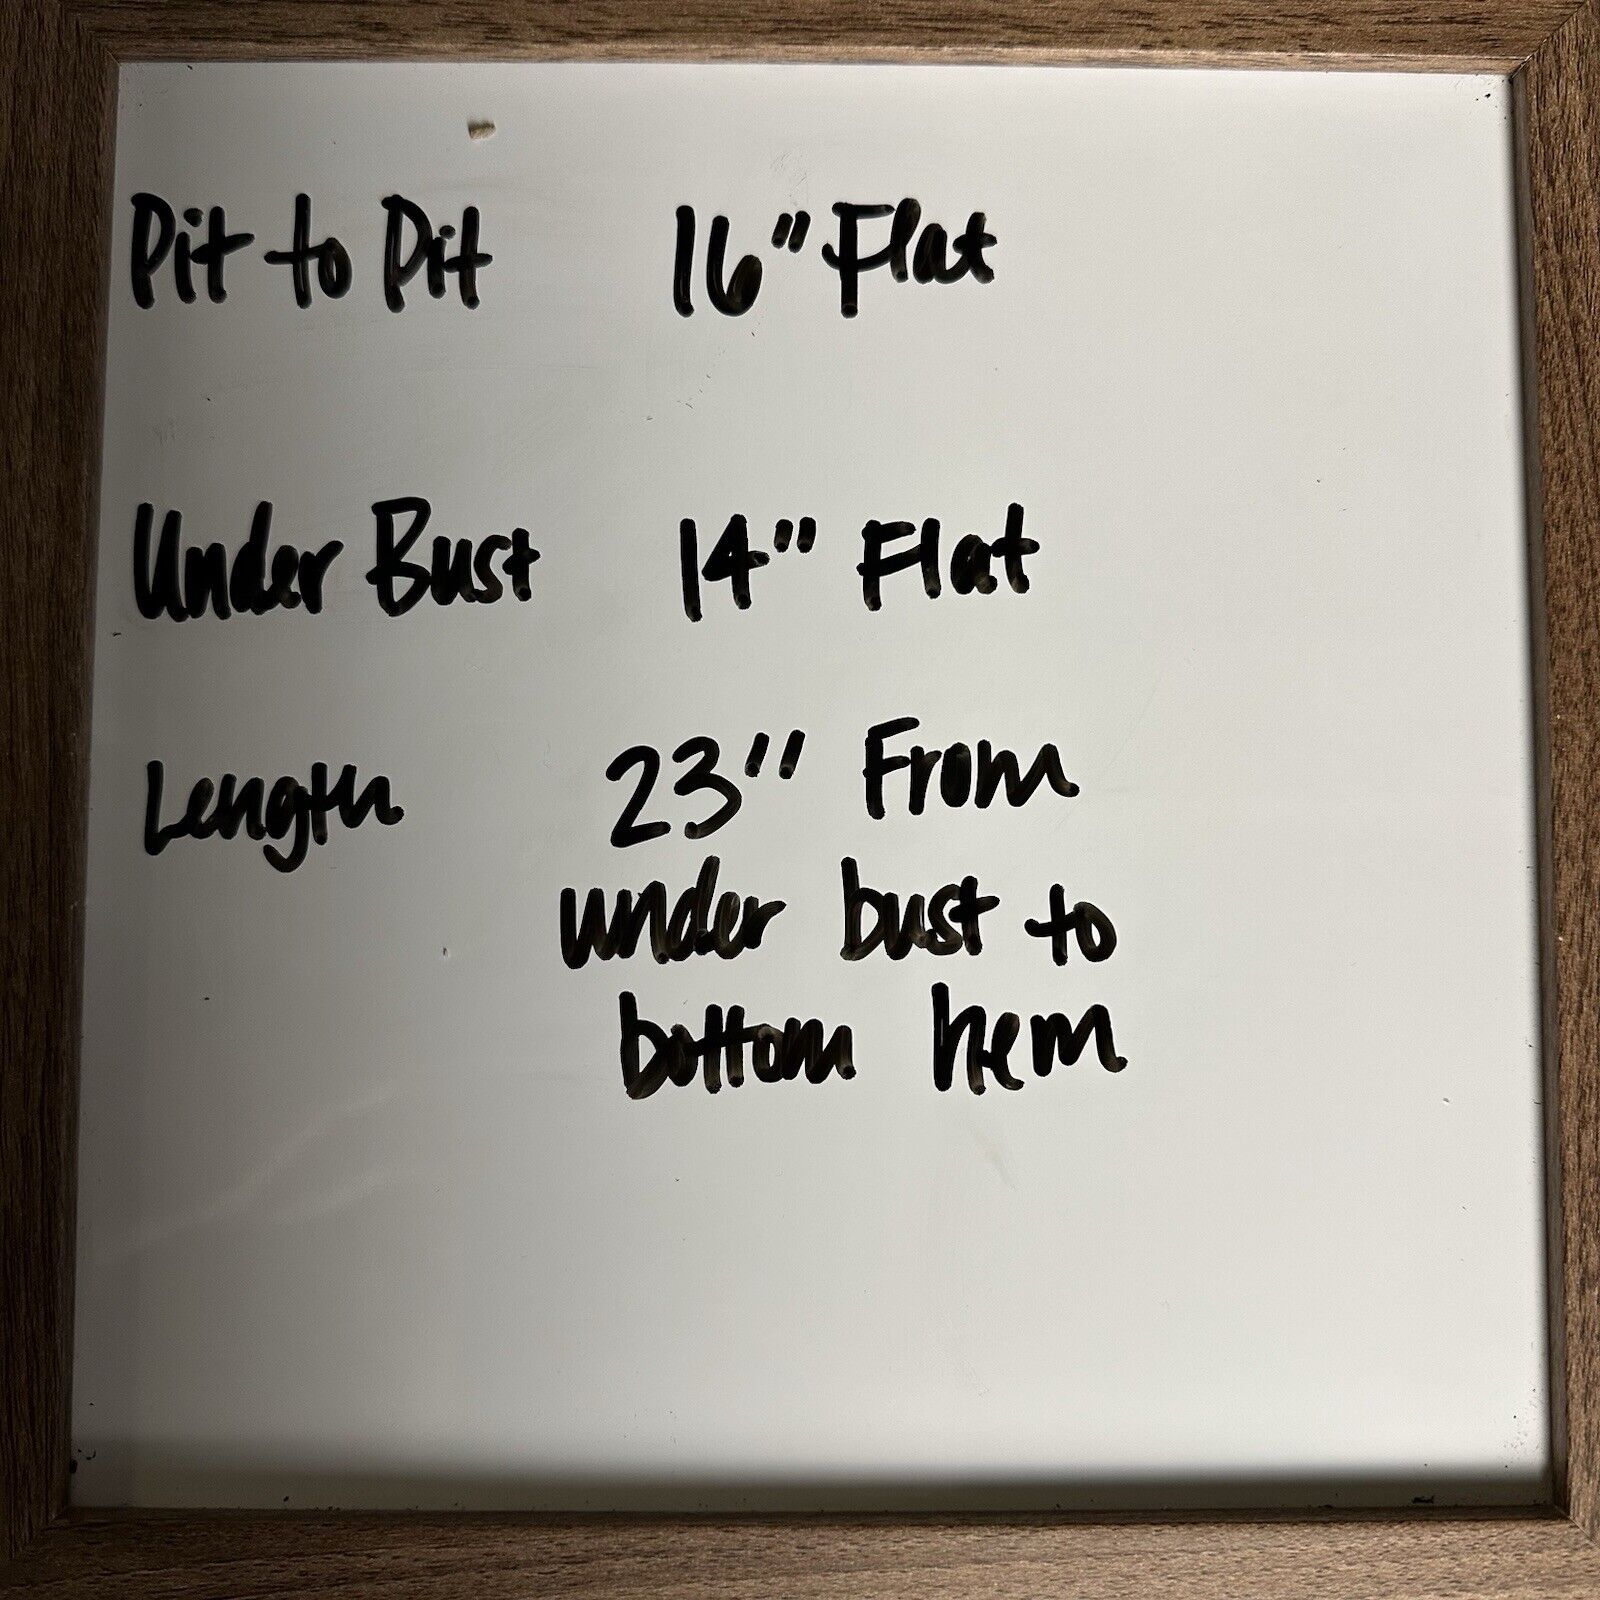 Pit to Pit 16" Flat
Under Bust 14" Flat
Length 23" From
under bust to
bottom hem